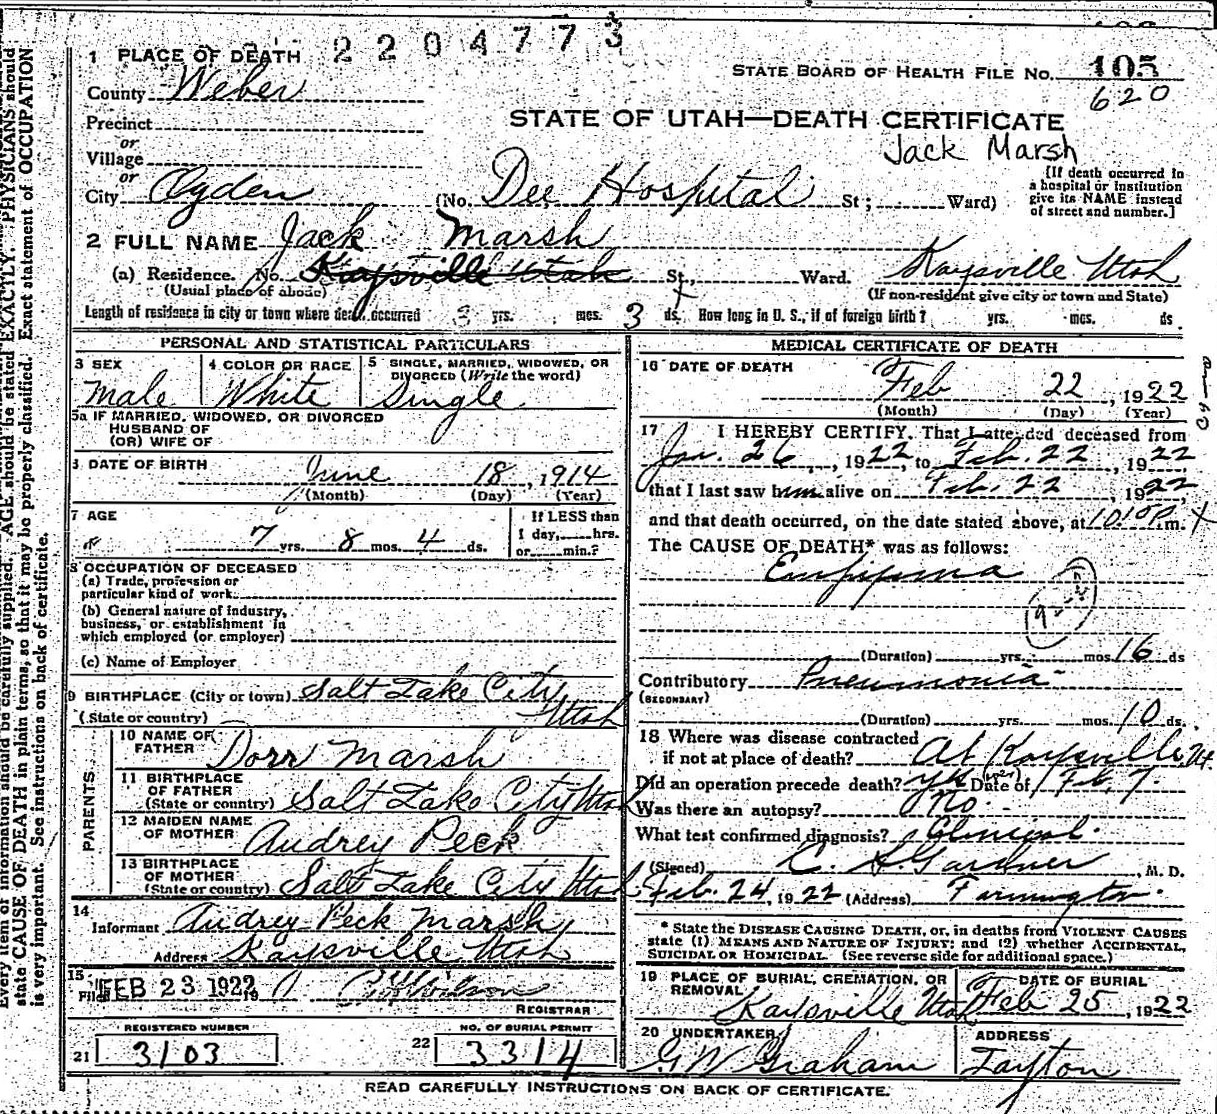 2204773
1 PLACE OF DEATH
STATE BOARD OF HEALTH FILE No. 105
620
County Weber
Precinct
or
Village
or
City Ogden
STATE OF UTAH—DEATH CERTIFICATE
Jack Marsh
(No. Dee Hospital St; Ward)
[If death occurred in
a hospital or institution
give its NAME instead
of street and number.]
2 FULL NAME Jack Marsh
(a) Residence. No. Kaysville Utah St., Ward. Kaysville Utah
(Usual place of abode) (If non-resident give city or town and State)
Length of residence in city or town where death occurred yrs. mos. 3 ds. How long in U. S., if of foreign birth? yrs. mos. ds.
PERSONAL AND STATISTICAL PARTICULARS
3 SEX
Male
4 COLOR OR RACE
White
5 SINGLE, MARRIED, WIDOWED, OR
DIVORCED (Write the word)
Single
5a IF MARRIED, WIDOWED, OR DIVORCED
HUSBAND OF
(OR) WIFE OF
DATE OF BIRTH
June 18, 1914
(Month) (Day) (Year)
7 AGE
7 yrs. 8 mos. 4 ds.
If LESS than
1 day, hrs.
or min.?
8 OCCUPATION OF DECEASED
(a) Trade, profession or
particular kind of work
(b) General nature of industry,
business, or establishment in
which employed (or employer)
(c) Name of Employer
9 BIRTHPLACE (City or town) Salt Lake City
(State or country) Utah
PARENTS
10 NAME OF
FATHER Dorr Marsh
11 BIRTHPLACE
OF FATHER
(State or country) Salt Lake City Utah
12 MAIDEN NAME
OF MOTHER Audrey Peck
13 BIRTHPLACE
OF MOTHER
(State or country) Salt Lake City Utah
14
Informant Audrey Peck Marsh
Address Kaysville Utah
15
Filed FEB 23 1922
REGISTRAR
REGISTERED NUMBER
21 3103
NO. OF BURIAL PERMIT
22 3314
MEDICAL CERTIFICATE OF DEATH
16 DATE OF DEATH
Feb 22, 1922
(Month) (Day) (Year)
17 I HEREBY CERTIFY, That I attended deceased from
Jan. 26, 1922, to Feb. 22, 1922
that I last saw him alive on Feb. 22, 1922,
and that death occurred, on the date stated above, at m.
The CAUSE OF DEATH* was as follows:
Empyema
(Duration) yrs. mos. 16 ds
Contributory Pneumonia
(SECONDARY)
(Duration) yrs. mos. 10 ds.
18 Where was disease contracted
if not at place of death? At Kaysville, Ut.
Did an operation precede death? yes Date of Feb. 7.
Was there an autopsy? No.
What test confirmed diagnosis? Clinical.
(Signed) C. A. Gardner, M. D.
Feb. 24, 1922 (Address) Farmington.
* State the DISEASE CAUSING DEATH, or, in deaths from VIOLENT CAUSES
state (1) MEANS AND NATURE OF INJURY; and (2) whether ACCIDENTAL,
SUICIDAL OR HOMICIDAL. (See reverse side for additional space.)
19 PLACE OF BURIAL, CREMATION, OR
REMOVAL
Kaysville Utah
DATE OF BURIAL
Feb 25, 1922
20 UNDERTAKER
G W Graham
ADDRESS
Layton
READ CAREFULLY INSTRUCTIONS ON BACK OF CERTIFICATE.
Every item of information should be carefully supplied. AGE should be stated EXACTLY. PHYSICIANS should
state CAUSE OF DEATH in plain terms, so that it may be properly classified. Exact statement of OCCUPATION
is very important. See instructions on back of certificate.